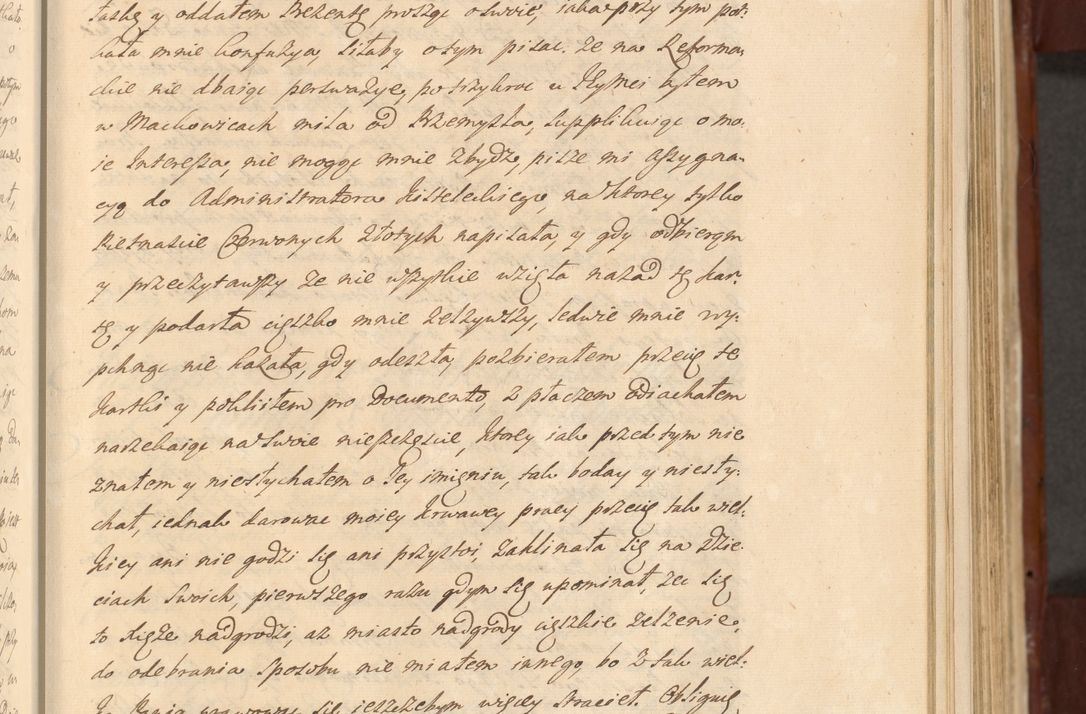 łaskę y oddałem Prezentę prosząc o swoie, iaka przy tym pot:
kała mnie konfuzya, żiłaby o tym pisac. Że na Reforma,
ckie nie dbaiąc perswazye, potrzykroc u Jeymci byłem
w Mackowicach mila od Przemysla, suppl​ikuiąc o mo,
ie Interessa, nie mogąc mnie zbydz, pisze mi assygna,
cyą do Administratora Kisieleckiego, na ktorey tylko
Pietnascie Czerwonych Złotych napisała, y gdy odbierąm
y przeczytawszy że nie wszytkie wzięła nazad tę kar,
tę y podarła cięszko mnie zelzywszy, ledwie mnie wy:
pchnąc nie kazała, gdy odeszła, pozbierałem przecię te
kartki y pokleiłem pro Documento, z płaczem odiachałem
narzekaiąc na swoie niesczęscie, ktorey iak przed tym nie
znałem y niesłychałem o Jey imięniu, tak boday y niesły:
chał, iednak darowac moiey krwawey pracy przecię tak wiel:
kiey ani nie godzi się ani przystoi, zaklinała się na Dzie:
ciach swoich, pierwszego razu gdym się upominał, że się
to tięże nadgrodzi, aż miasto nadgrody cięszkie zelzenie,
do odebrania sposobu nie miałem innego, bo z tak wiel:
się ieszczebym więcey stracieł. Obliguię